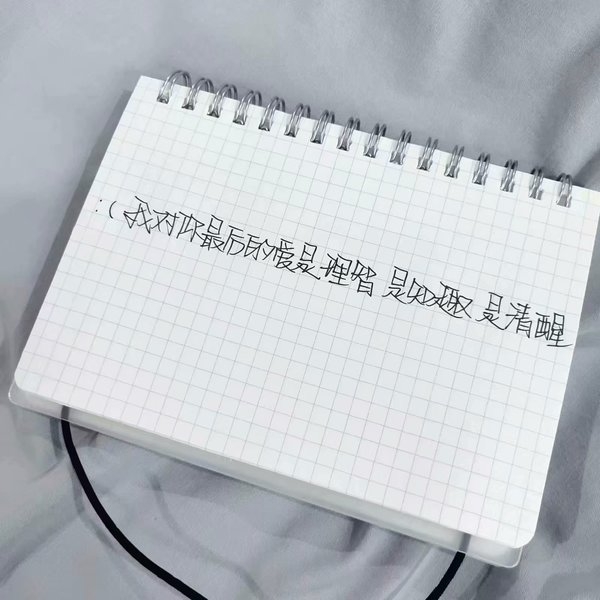 :( 我对你最后的爱是理智 是知趣 是清醒